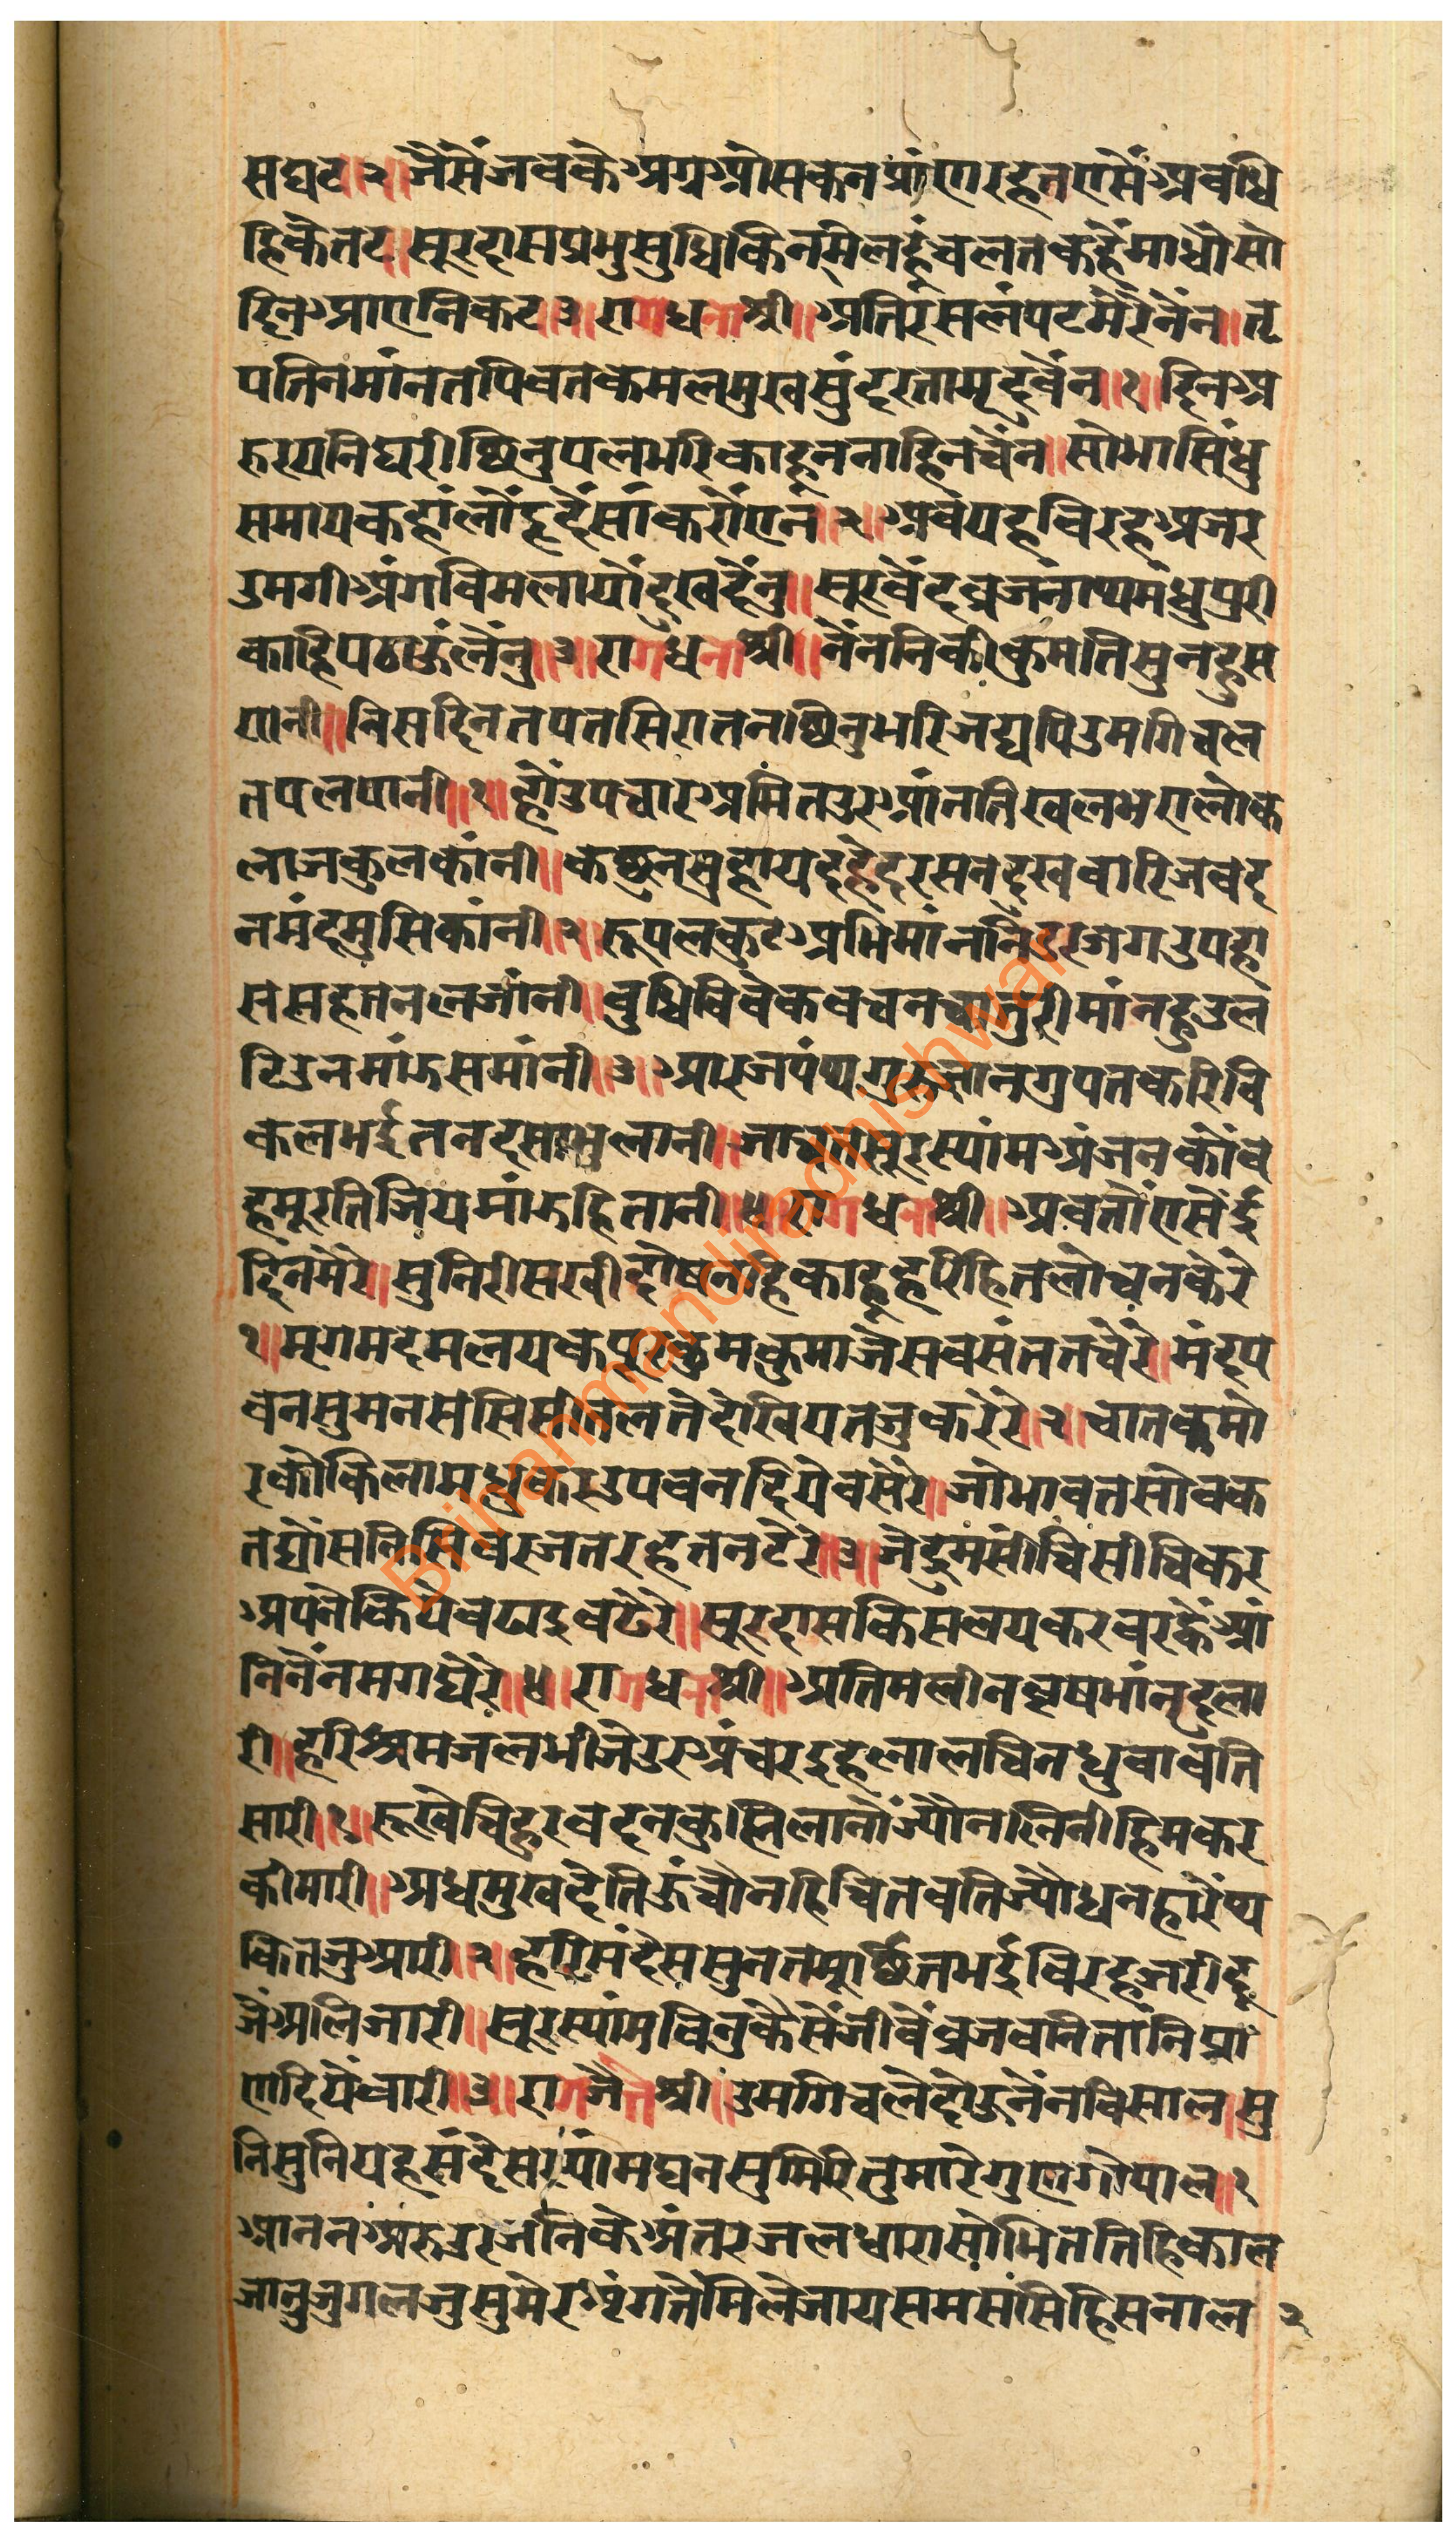 सघट॥२॥जैसेंजवकेअग्रओसकनप्रांणरहतएसेंअवधि
हिकेतट॥सूरदासप्रभुसुधिकिनमेलहुंचलतकहेंमाधौसो
दिनआएनिकट॥३॥रागधनाश्री॥अतिरसलंपटमेरेनेंन॥तृ
पतिनमांनतपिवतकमलमुखसुंदरतामृदवेंन॥१॥दिनअ
रुरयनिघरीछिनुपलभरिकाहूननाहिनचेंन॥सोभासिंधु
समायकहांलौंहृदेंसांकरोंएेंन॥२॥अवयहविरहअजर
उमगीअंगविमलायौदुखदेंनु॥सूरवेदव्रजनाथमधुपुरी
काहिपठाऊंलेंनु॥३॥रागधनाश्री॥नेंननिकीकुमतिसुनहुस
यानी॥निसदिनतपतसिरातनछिनुभरिजद्यपिउमगिचल
तपलपानी॥१॥हौंउपचारअमितउरआंनतिखलभएलोक
लाजकुलकांनी॥कछुनसुहायदहेदरसनदुखवारिजवद
नमंदमुसिकांनी॥२॥रूपलकुटअभिमांननिडरजगउपहा
ससहतनलजांनी॥बुधिविवेकवचनचातुरीमांनहुउल
टिउनमांऊसमांनी॥३॥आरजपंथगुरुज्ञानगुपतकरिवि
कलभईतनदसाभुलानी॥जाचतसूरस्यांमअंजनकौंव
हमूरतिजियमांऊहितानी॥४॥रागधनाश्री॥अवतौएसेंई
दिनमेरे॥सुनिरीसखीदोषनहिकाहूहरिहितलोचनकेरे
१॥मृगमदमलयकपूरकुमकुमाजेसवसंततचेरे॥मंदप
वनसुमनससिसीतलतेदेखियतजुकरेरे॥२॥चातकमो
रकोकिलामधुकरउपवनदियेवसेरे॥जोभावतसोवक
तद्यौंसनिसिवरजतरहतनटेरे॥३॥जेद्रुमसींचिसींचिकर
अपनेकियेवढाइवढेरे॥सूरदासकिसलयकरवरह्वेंआं
निनेंनमगघेरे॥४॥रागधनाश्री॥अतिमलीनवृषभांनुदुला
री॥हरिश्रमजलभीजेउरअंचरइहलालचिनधुवावति
सारी॥१॥रूखेचिहुरवदनकुम्निलानोंज्योंनलिनीहिमकर
कीमारी॥अधमुखदेतिऊंचोनहिचितवतिज्यौधनहारेंथ
कितजुआरी॥२॥हरिसंदेससुनतमूर्छितभईविरहजरीदू
जेंअलिजारी॥सूरस्यांमविनुकैसेंजीवेंव्रजवनितांनिप्रां
णदियेवारी॥३॥रागजैतश्री॥उमगिचलेदोऊनेंनविसाल॥सु
निसुनियहसंदेसस्यांमघनसुमिरितुमारेगुणगोपाल॥१
आननअरुउरजनिकेअंतरजलधारासोभिततिहिकाल
जानुजुगलजुसुमेरशृंगतेंमिलेजायसमससिहिसनाल २
Brihanmandiradhishwar